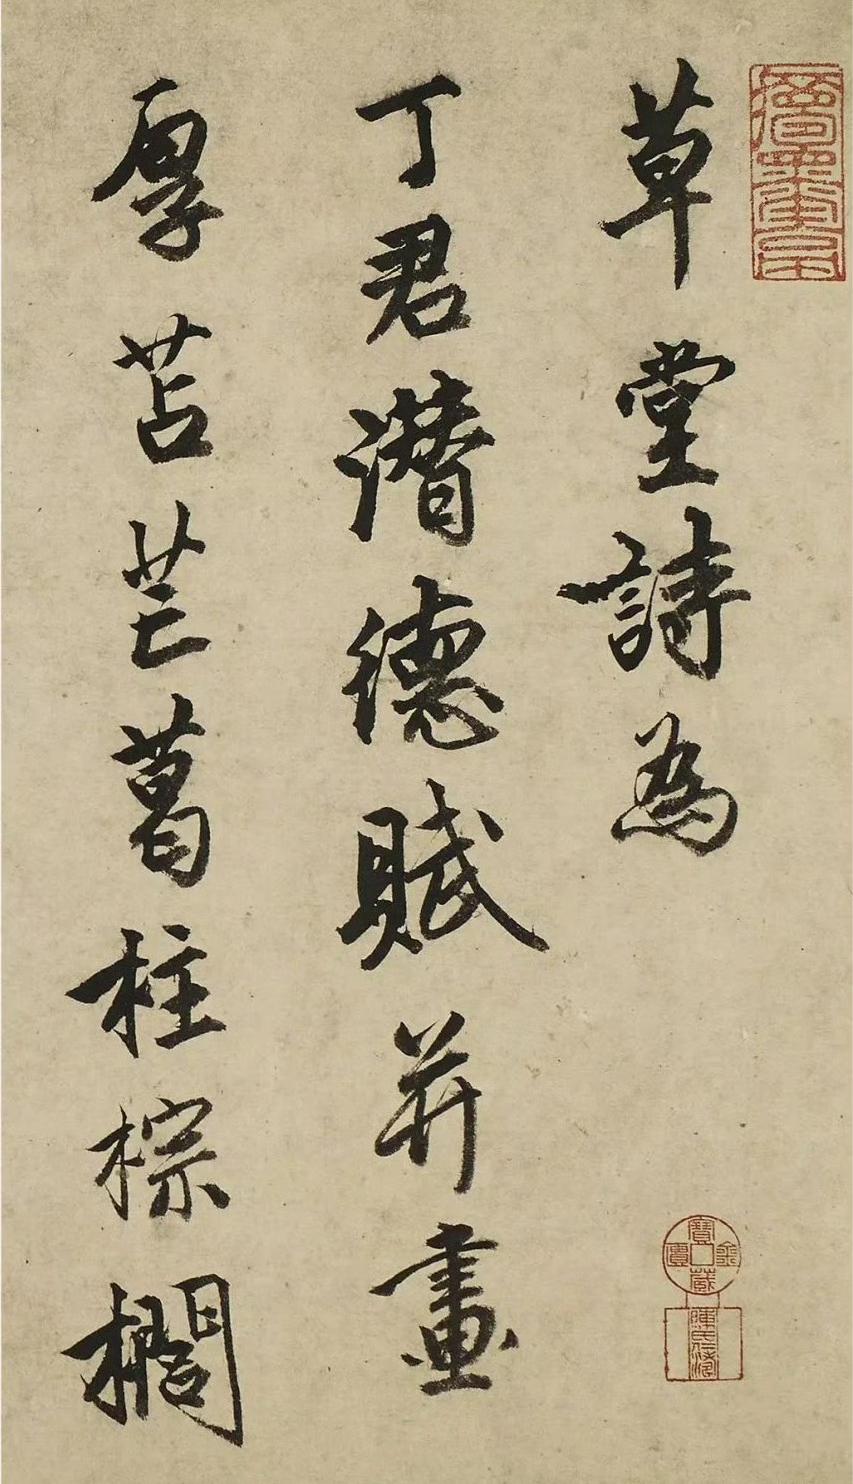 草堂詩為
丁君潜德賦并畫
厚苫芒葛柱棕櫚